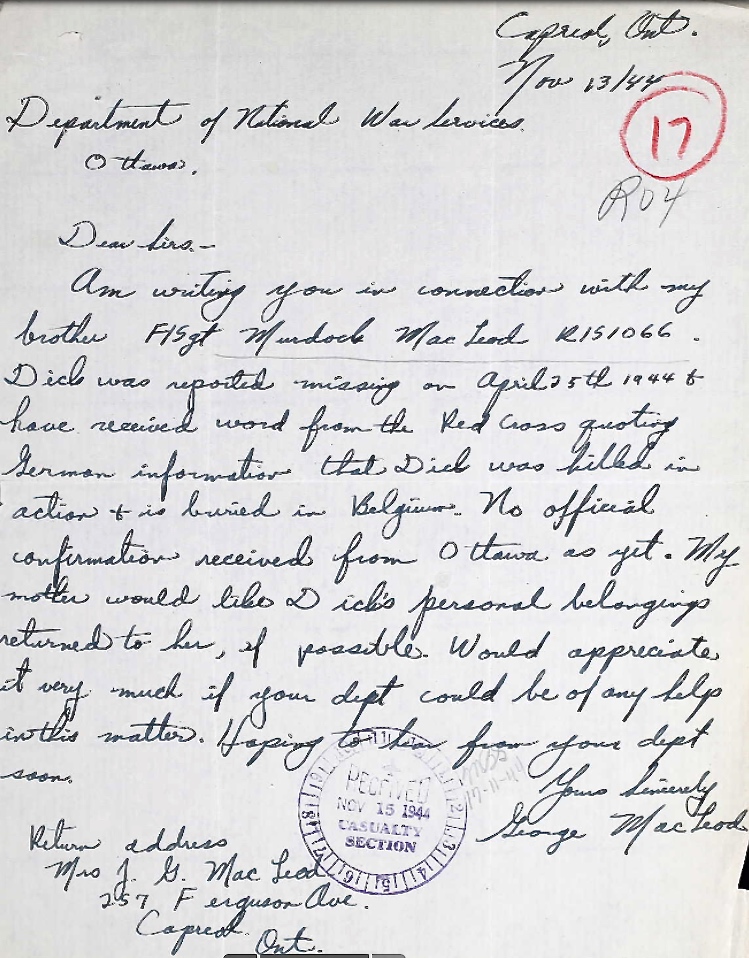 Capreol, Ont.
Nov 13/44
17
Department of National War Services.
Ottawa.
R04
Dear Sirs.-
Am writing you in connection with my
brother F/Sgt Murdock MacLeod R151066.
Dick was reported missing on April 25th 1944 &
have received word from the Red Cross quoting
German information that Dick was killed in
action & is buried in Belgium. No official
confirmation received from Ottawa as yet. My
mother would like Dick's personal belongings
returned to her, if possible. Would appreciate
it very much if your dept could be of any help
in this matter. Hoping to hear from your dept
soon.
Yours Sincerely
George MacLeod
RECEIVED
NOV 15 1944
CASUALTY
SECTION
Return address
Mrs J. G. MacLeod
257 Ferguson Ave.
Capreol
Ont.